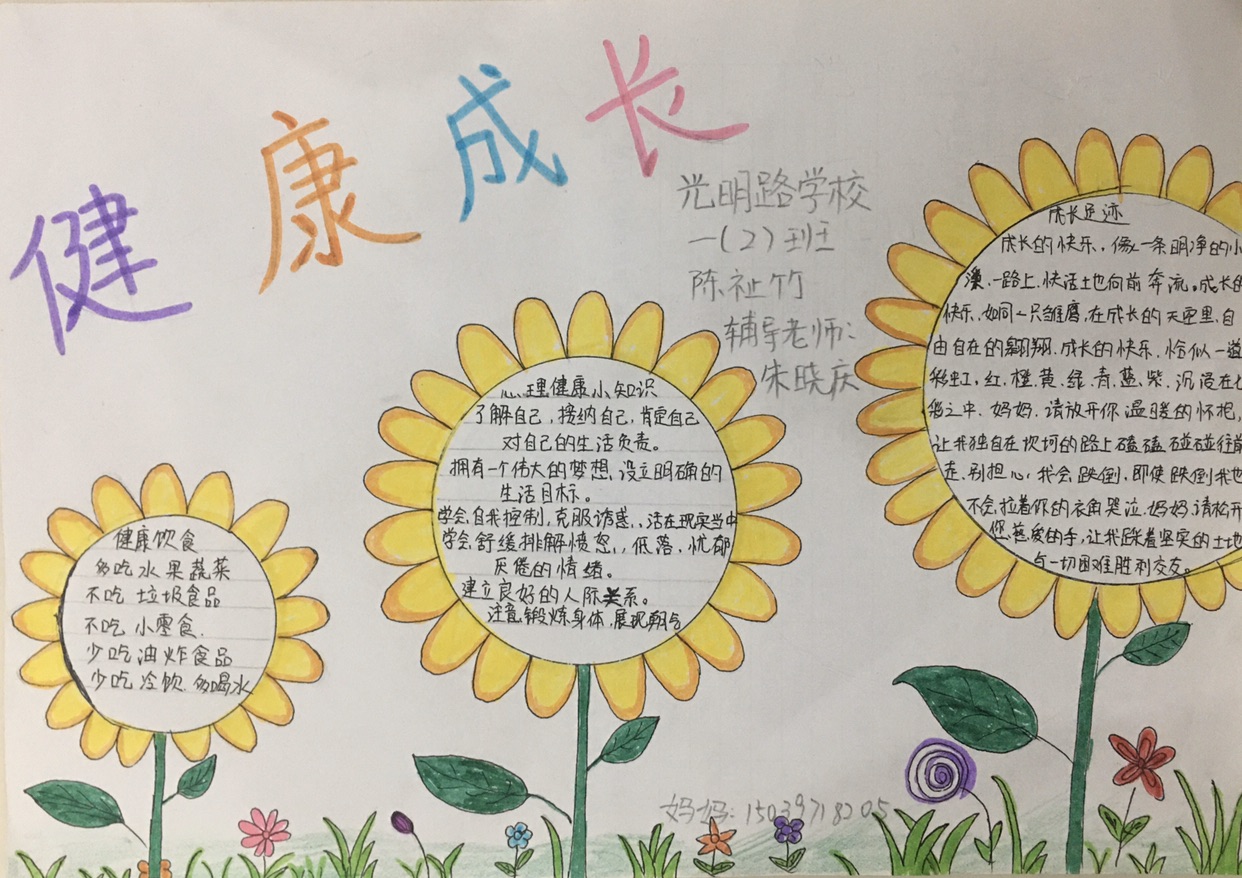 健康成长
光明路学校
一(2)班
陈祉竹
辅导老师:
朱晓庆
健康饮食
多吃水果蔬菜
不吃垃圾食品
不吃小零食.
少吃油炸食品
少吃冷饮.多喝水
心理健康小知识
了解自己,接纳自己,肯定自己
对自己的生活负责。
拥有一个伟大的梦想,设立明确的
生活目标。
学会自我控制,克服诱惑,,活在现实当中
学会舒缓排解愤怒,,低落、忧郁
厌倦的情绪。
建立良好的人际关系。
注意锻炼身体,展现朝气
成长足迹
成长的快乐,像一条明净的小
溪,一路上,快活土也向前奔流。成长的
快乐,如同一只雏鹰,在成长的天空里,自
由自在的翱翔.成长的快乐,恰似一道
彩虹,红、橙、黄、绿、青、蓝、紫,沉浸在
之中,妈妈,请放开你温暖的怀抱,
让我独自在坎坷的路上磕磕碰碰往前
走,别担心,我会跌倒,即使跌倒我也
不会,拉着你的衣角哭泣,妈妈,请松开
您慈爱的手,让我踩着坚实的土地
与一切困难胜利交友。
妈妈:15039718205